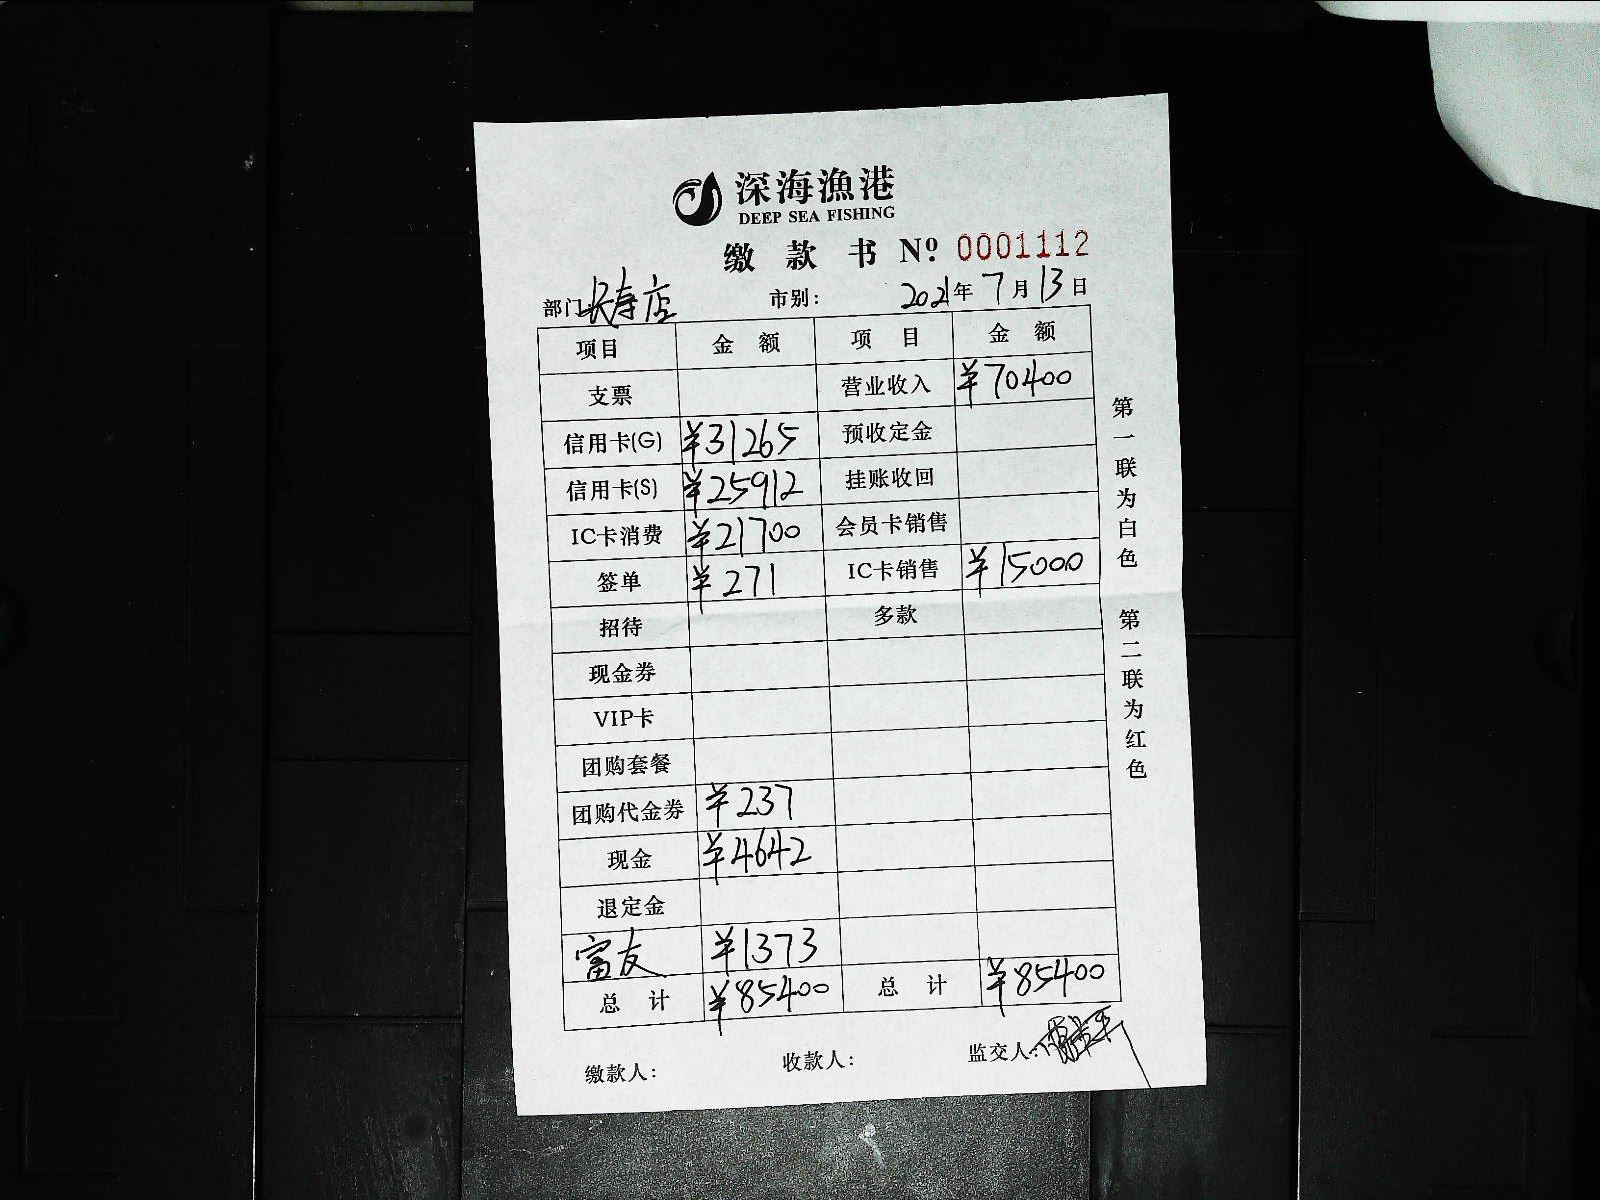 深海漁港
DEEP SEA FISHING
缴款书 Nº 0001112
部门: 长寿店 市别: 2021年7月13日
项目 金额 项目 金额
支票 营业收入 ¥70400
信用卡(G) ¥31265 预收定金
信用卡(S) ¥25912 挂账收回
IC卡消费 ¥21700 会员卡销售
签单 ¥271 IC卡销售 ¥15000
招待 多款
现金券
VIP卡
团购套餐
团购代金券 ¥237
现金 ¥4642
退定金
富友 ¥1373
总计 ¥85400 总计 ¥85400
缴款人: 收款人: 监交人:
第一联为白色 第二联为红色